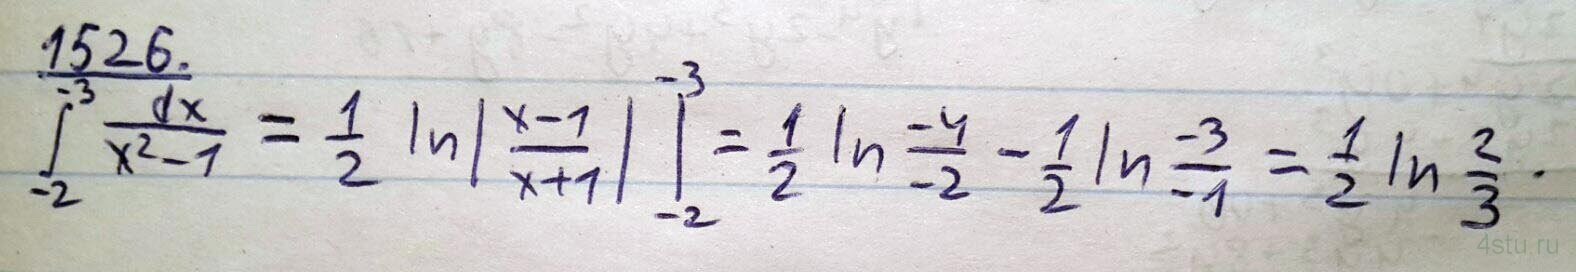 1526.
∫_{-2}^{-3} dx/(x²-1) = 1/2 ln|(x-1)/(x+1)| |_{-2}^{-3} = 1/2 ln (-4)/(-2) - 1/2 ln (-3)/(-1) = 1/2 ln 2/3.
4stu.ru